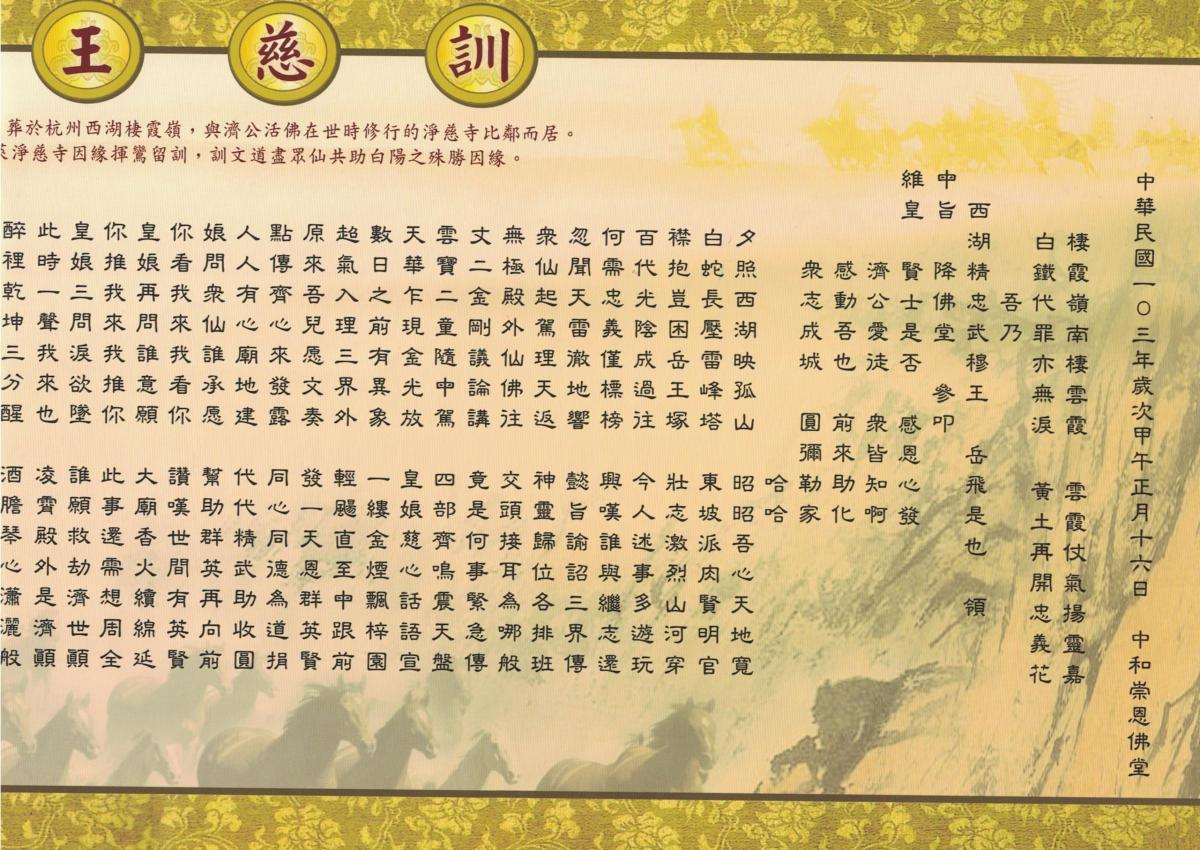 王慈訓
葬於杭州西湖棲霞嶺，與濟公活佛在世時修行的淨慈寺比鄰而居。
淨慈寺因緣揮鸞留訓，訓文道盡眾仙共助白陽之殊勝因緣。
中華民國一〇三年歲次甲午正月十六日　中和崇恩佛堂
棲霞嶺南棲雲霞　雲霞仗氣揚靈嘉
白鐵代罪亦無淚　黃土再開忠義花
吾乃
西湖精忠武穆王　岳飛是也　領
申旨　降佛堂　參叩
維皇　賢士是否　感恩心發
濟公愛徒　眾皆知啊
感動吾也　前來助化
眾志成城　圓彌勒家
哈哈
夕照西湖映孤山　昭昭吾心天地寬
白蛇長壓雷峰塔　東坡派肉賢明官
襟抱豈困岳王塚　壯志激烈山河穿
百代光陰成過往　今人述事多遊玩
何需忠義僅標榜　興嘆誰與繼志還
忽聞天雷徹地響　懿旨諭詔三界傳
衆仙起駕理天返　神靈歸位各排班
無極殿外仙佛往　交頭接耳為哪般
丈二金剛議論講　竟是何事緊急傳
雲寶二童隨申駕　四部齊鳴震天盤
天華乍現金光放　皇娘慈心話語宣
數日之前有異象　一縷金煙飄梓園
超氣入理三界外　輕颺直至申跟前
原來吾兒愿文奏　發一天恩群英賢
點傳齊心來發露　同心同德為道捐
人人有心廟地建　代代精武助收圓
娘問衆仙誰承愿　幫助群英再向前
你看我來我看你　讚嘆世間有英賢
皇娘再問誰意願　大廟香火續綿延
你推我來我推你　此事還需想周全
皇娘三問淚欲墜　誰願救劫濟世顚
此時一聲我來也　凌霄殿外是濟顚
醉裡乾坤三分醒　酒膽琴心瀟灑般